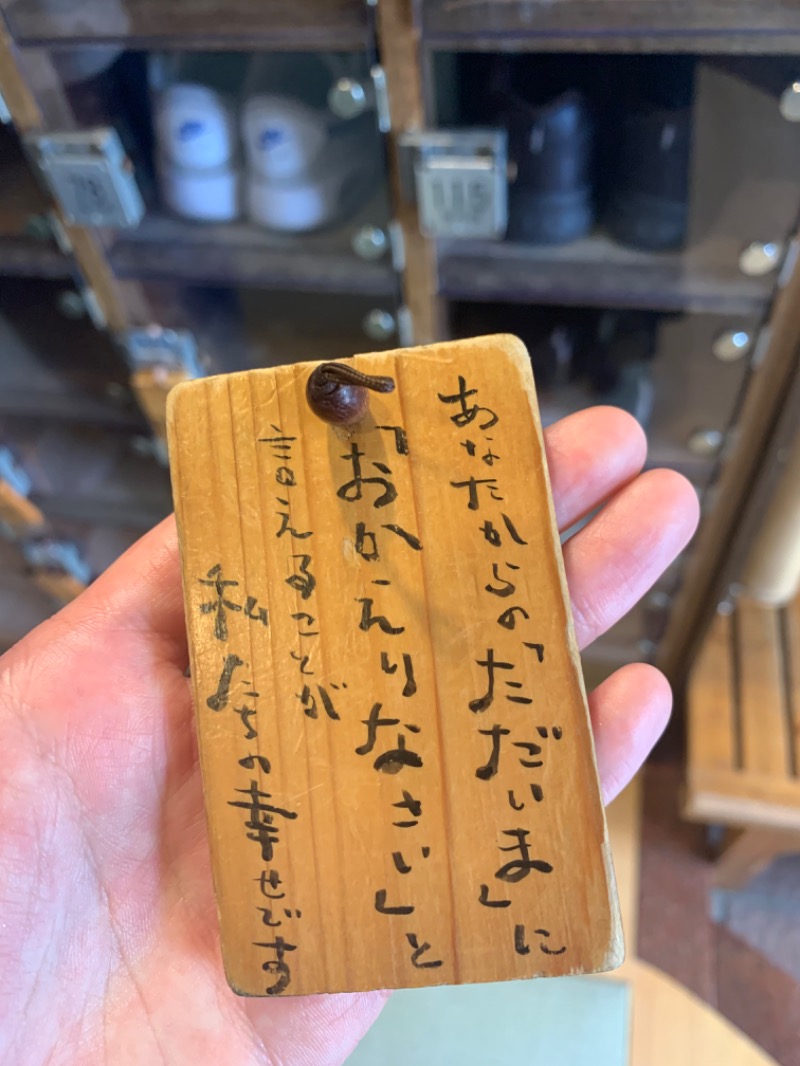 あなたからの「ただいま」に
「おかえりなさい」と
言えることが
私たちの幸せです
115